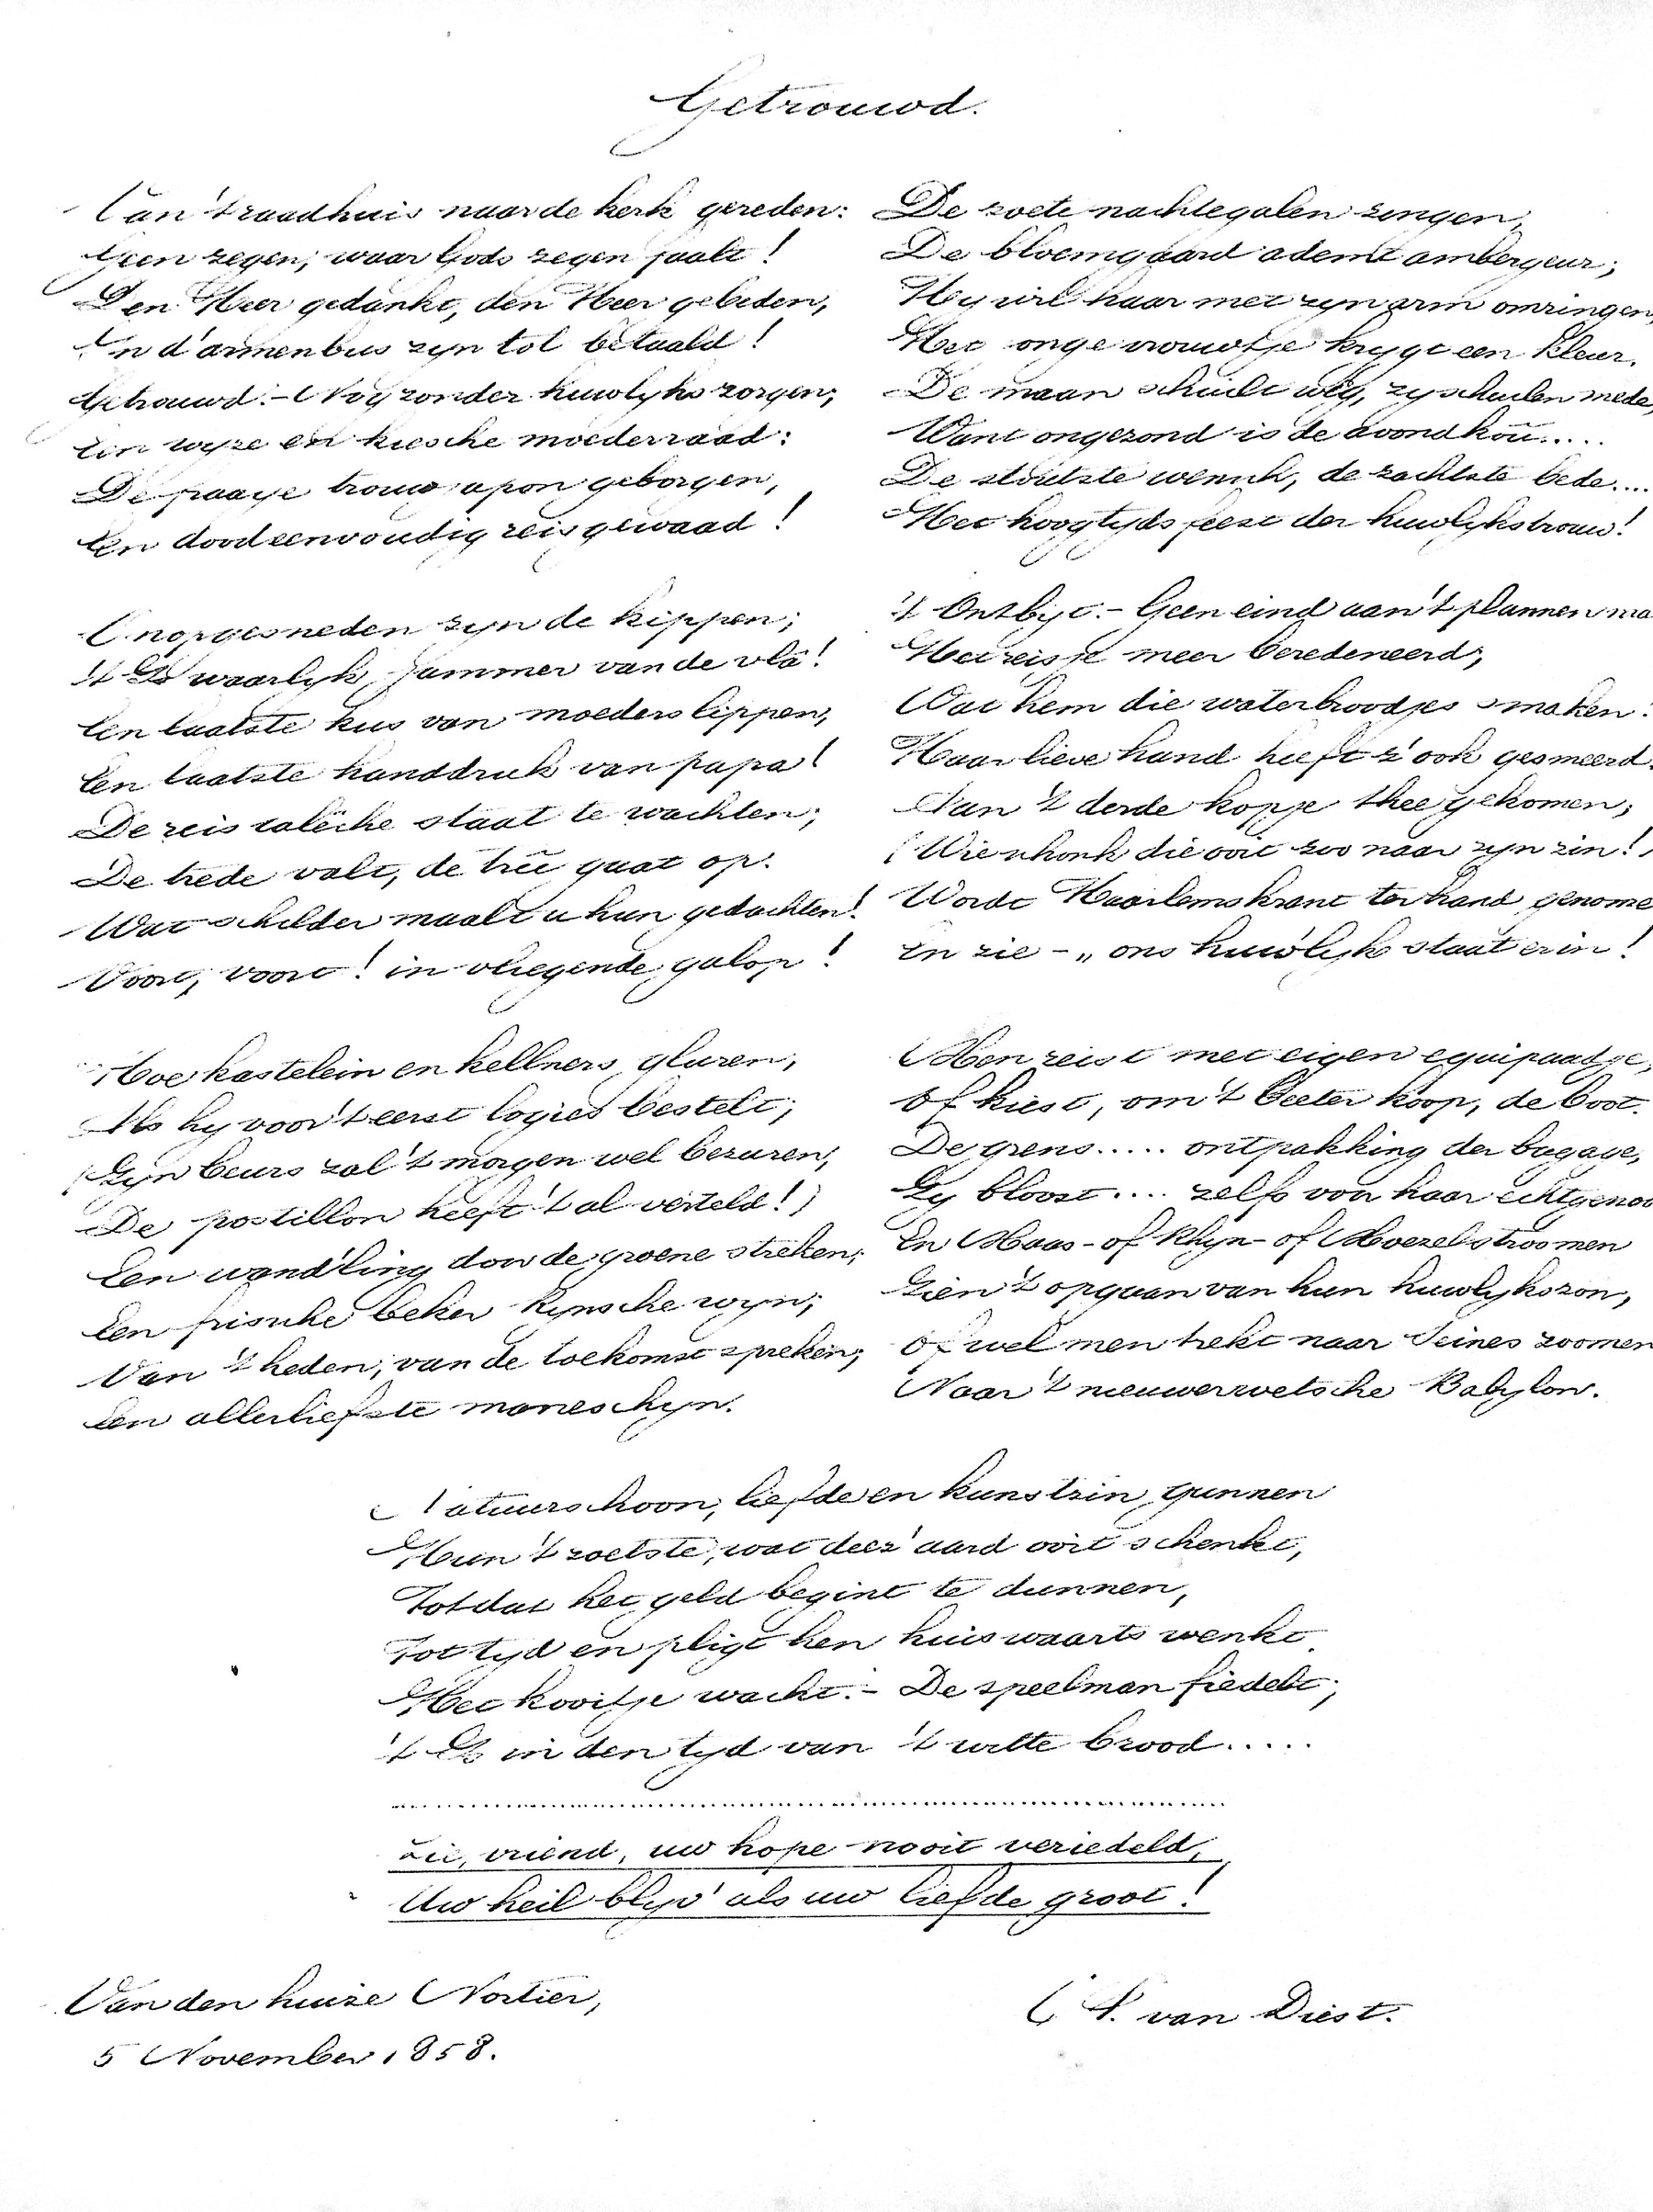 Getrouwd.
Van 't raadhuis naar de kerk gereden:
Geen zegen, waar Gods zegen faalt!
Den Heer gedankt, den Heer gebeden,
In d'armenbus zyn tol betaald!
Getrouwd. – Nog zonder huwlyks zorgen;
Een wyze en kiesche moederraad:
De fraaye trouwjapon geborgen,
Een doodeenvoudig reisgewaad!
Onopgesneden zyn de kippen;
't Is waarlyk jammer van de vlâ!
Een laatste kus van moeders lippen,
Een laatste handdruk van papa!
De reiscalêche staat te wachten;
De trede valt, de treê gaat op.
Wat schilder maalt u hun gedachten!
Voort, voort! in vliegende galop!
Hoe kastelein en kellners gluren,
Als hy voor 't eerst logies bestelt;
(Zyn beurs zal 't morgen wel bezuren,
De postillon heeft 't al verteld!)
Een wand'ling door de groene streken;
Een frissche beker Rynsche wyn;
Van 't heden, van de toekomst spreken;
Een allerliefste maneschyn.
De zoete nachtegalen zingen,
De bloemgaard ademt ambergeur;
Hy wil haar met zyn arm omringen,
Het jonge vrouwtje krygt een kleur.
De maan schuilt weg, zy schuilen mede,
Want ongezond is de avondkoû.....
De stoutste wensch, de zachtste bede....
Het hoogtyds feest der huwlykstrouw!
't Ontbyt. – Geen eind aan 't plannen ma
Het reisje meer beredeneerd;
Wat hem die waterbroodjes smaken:
Haar lieve hand heeft z' ook gesmeerd.
Aan 't derde kopje thee gekomen;
(Wie schonk die ooit zoo naar zyn zin!)
Wordt Haarlems krant ter hand genome
En zie – „ons huwlyk staat er in!
Men reist met eigen equipaadje,
Of kiest, om 't beeter koop, de boot.
De grens..... ontpakking der bagage,
Zy bloost.... zelfs voor haar echtgenoo
En Maas- of Rhyn- of Moezelstroomen
Zien 't opgaan van hun huwlykszon,
Of wel men trekt naar Seines zoomen
Naar 't nieuwerwetsche Babylon.
Natuurschoon, liefde en kunstzin gunnen
Hun 't zoetste, wat deez' aard ooit schenkt,
Totdat het geld begint te dunnen,
Tot tyd en pligt hen huiswaarts wenkt
Het kooitje wacht. – De speelman fiedelt;
't Is in den tyd van 't witte brood.....
Zie, vriend, uw hope nooit veriedeld,
Uw heil blyv' als uw liefde groot!
Van den huize Nortier,
5 November 1858.
van Diest.